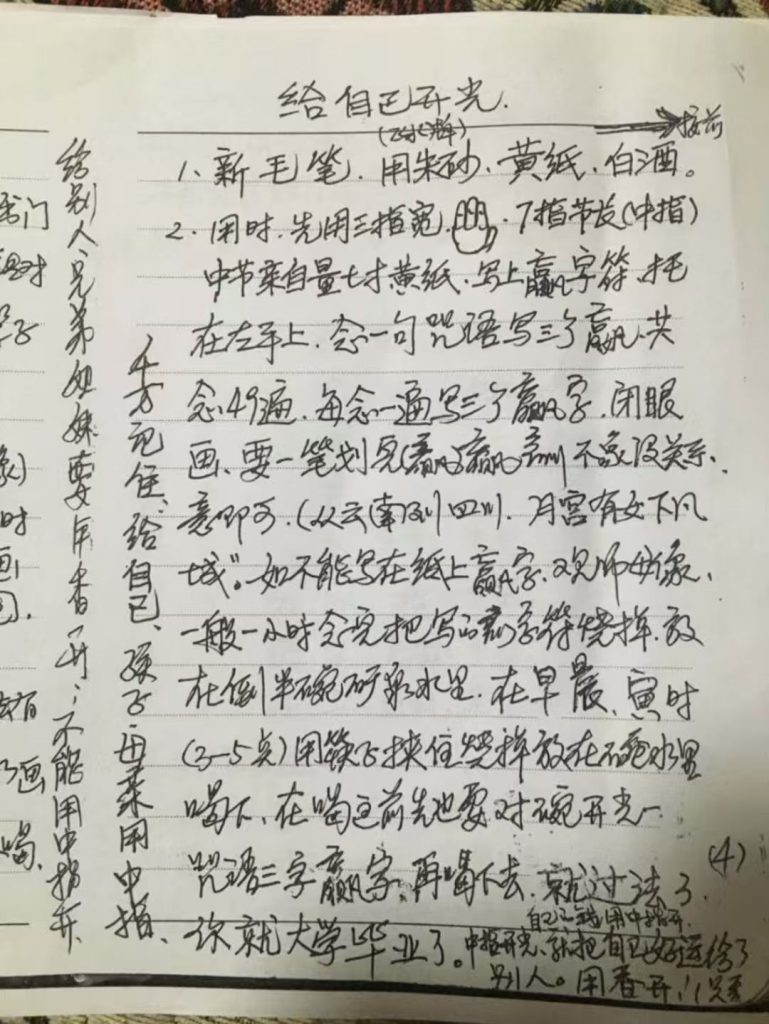 给自己开光.
1、新毛笔、用朱砂、黄纸、白酒。
2、用时、先用三指宽、7指节长(中指)
中节亲自量七寸黄纸、写上赢字符、托
在左手上、念一句咒语写三个赢、共
念49遍、每念一遍写三个赢字、闭眼
画、要一笔划完(赢赢 不象没关系、
意即可、(从云南到四川、月宫有女下凡
城"。如不能写在纸上赢字、观师母象、
一般一小时念完把写的赢字符烧掉、放
在倒半碗矿泉水里、在早晨、寅时
(3-5点)用筷子挟住烧掉放在碗水里
喝下、在喝之前先也要对碗开光一
咒语三字赢字、再喝下去、就过法了、
你就大学毕业了。
中指开光、就把自己好运给了
别人。用香开
(4)
千万记住、给自己、孩子母亲用中指、
给别人、兄弟姐妹要用香开、不能用中指开、